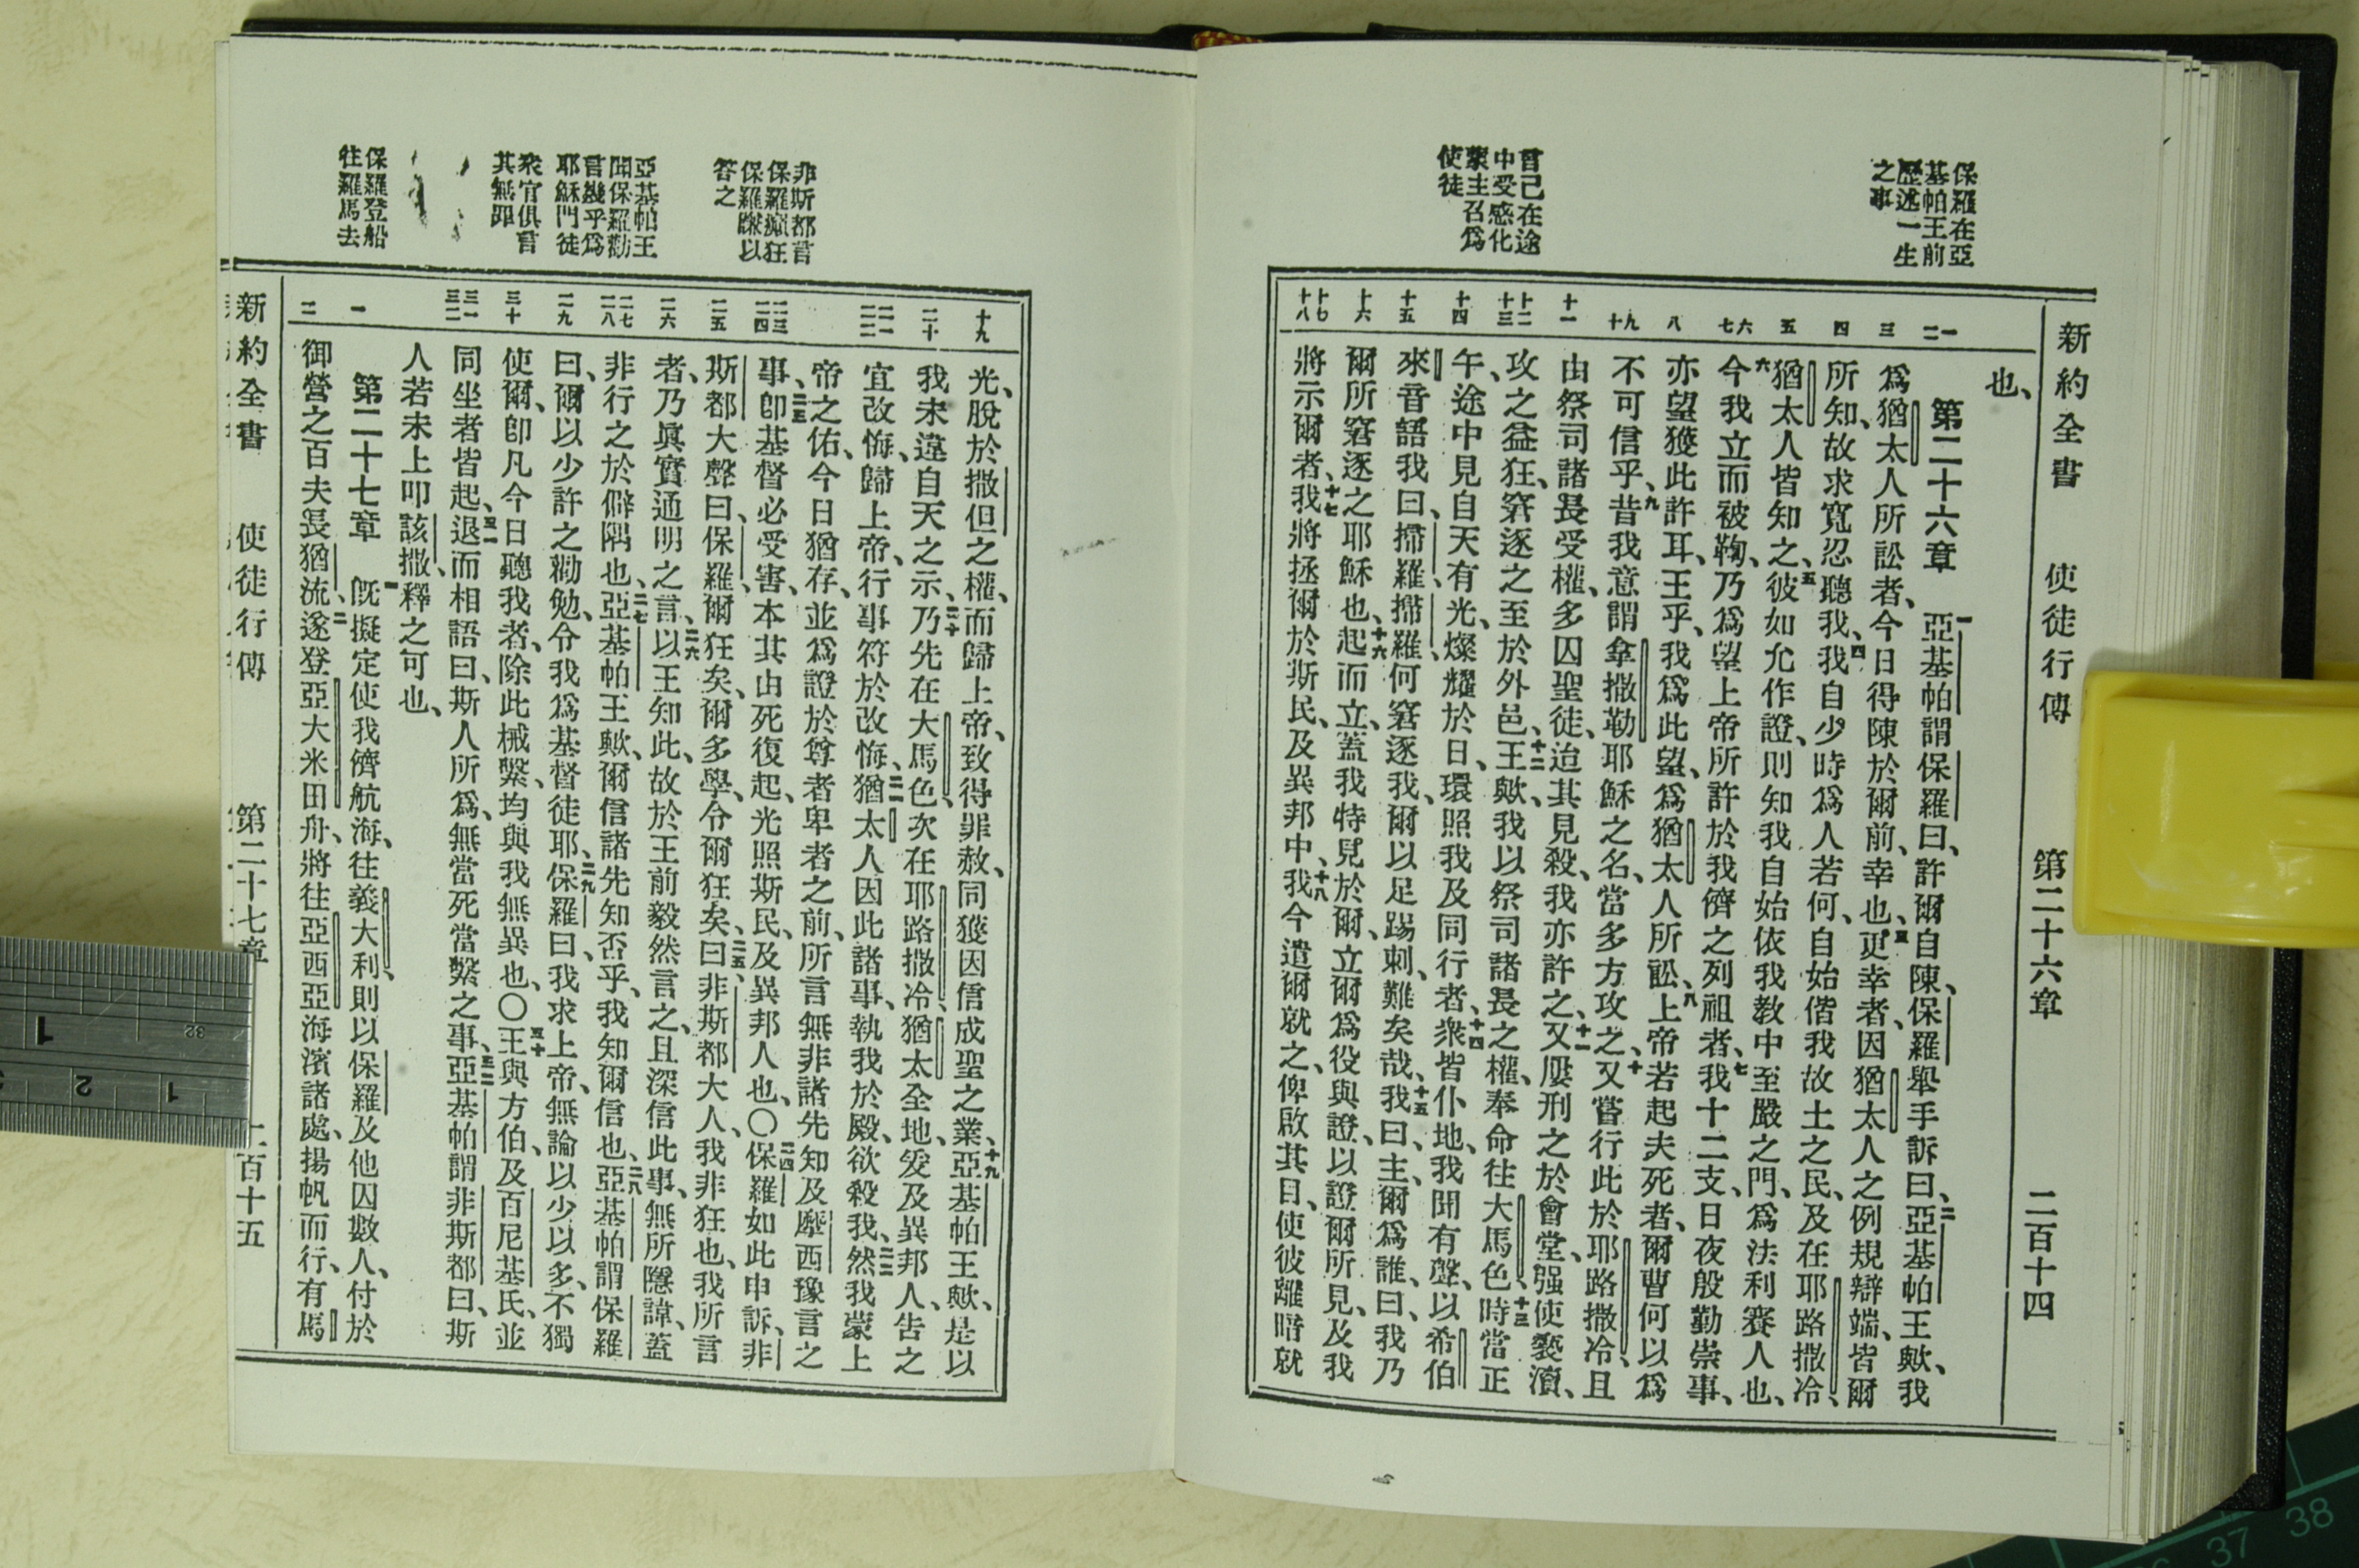 新約全書 使徒行傳 第二十六章 二百十四
保羅在亞
基帕王前
歷述一生
之事
言己在途
中受感化
蒙主召爲
使徒
一
二
三
四
五
六
七
八
九
十
十一
十二
十三
十四
十五
十六
十七
十八
也、
第二十六章 一亞基帕謂保羅曰、許爾自陳、保羅舉手訴曰、二亞基帕王歟、我
爲猶太人所訟者、今日得陳於爾前、幸也、三更幸者、因猶太人之例規辯端、皆爾
所知、故求寬忍聽我、四我自少時爲人若何、自始偕我故土之民、及在耶路撒冷、
猶太人皆知之、五彼如允作證、則知我自始依我教中至嚴之門、爲法利賽人也、
六今我立而被鞫、乃爲望上帝所許於我儕之列祖者、七我十二支、日夜殷勤崇事、
亦望獲此許耳、王乎、我爲此望、爲猶太人所訟、八上帝若起夫死者、爾曹何以爲
不可信乎、九昔我意謂拿撒勒耶穌之名、當多方攻之、十又嘗行此於耶路撒冷、且
由祭司諸長受權、多囚聖徒、迨其見殺、我亦許之、十一又屢刑之於會堂、强使褻瀆、
攻之益狂、窘逐之至於外邑、十二王歟、我以祭司諸長之權、奉命往大馬色、十三時當正
午、途中見自天有光、燦耀於日、環照我及同行者、十四衆皆仆地、我聞有聲、以希伯
來音語我曰、掃羅、掃羅、何窘逐我、爾以足踢刺、難矣哉、十五我曰、主、爾爲誰、曰、我乃
爾所窘逐之耶穌也、十六起而立、蓋我特見於爾、立爾爲役與證、以證爾所見、及我
將示爾者、十七我將拯爾於斯民、及異邦中、十八我今遣爾就之、俾啟其目、使彼離暗就
十九
二十
二一
二二
二三
二四
二五
二六
二七
二八
二九
三十
三一
三二
一
二
光、脫於撒但之權、而歸上帝、致得罪赦、同獲因信成聖之業、十九亞基帕王歟、是以
我未違自天之示、二十乃先在大馬色、次在耶路撒冷、猶太全地、爰及異邦人、告之
宜改悔、歸上帝、行事符於改悔、二一猶太人因此諸事、執我於殿、欲殺我、二二然我蒙上
帝之佑、今日猶存、並爲證於尊者卑者之前、所言無非諸先知及摩西豫言之
事、二三卽基督必受害、本其由死復起、光照斯民、及異邦人也、〇二四保羅如此申訴、非
斯都大聲曰、保羅、爾狂矣、爾多學、令爾狂矣、二五曰、非斯都大人、我非狂也、我所言
者、乃眞實通明之言、二六以王知此、故於王前毅然言之、且深信此事、無所隱諱、蓋
非行之於僻隅也、二七亞基帕王歟、爾信諸先知否乎、我知爾信也、二八亞基帕謂保羅
曰、爾以少許之勸勉、令我爲基督徒耶、二九保羅曰、我求上帝、無論以少以多、不獨
使爾、卽凡今日聽我者、除此械繫、均與我無異也、〇三十王與方伯、及百尼基氏、並
同坐者皆起、三一退而相語曰、斯人所爲、無當死當繫之事、三二亞基帕謂非斯都曰、斯
人若未上叩該撒、釋之可也、
第二十七章 一旣擬定使我儕航海、往義大利、則以保羅及他囚數人、付於
御營之百夫長猶流、二遂登亞大米田舟、將往亞西亞海濱諸處、揚帆而行、有馬
非斯都言
保羅癲狂
保羅遜以
答之
亞基帕王
聞保羅勸
言幾乎爲
耶穌門徒
衆官俱言
其無罪
保羅登船
往羅馬去
新約全書 使徒行傳 第二十七章 二百十五
1
32
2
1
37
38